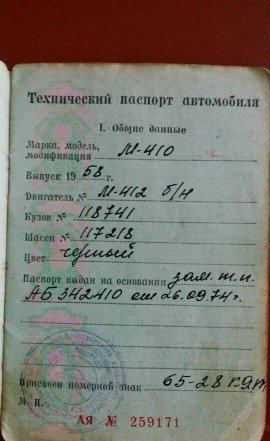 Технический паспорт автомобиля
I. Общие данные
Марка, модель,
модификация М-410
Выпуск 1958 г.
Двигатель № М-412 б/н
Кузов № 118741
Шасси № 117218
Цвет черный
Паспорт выдан на основании зам. т.п.
АБ 342410 от 26.09.74г.
Присвоен номерной знак 65-28
М. П.
АЯ № 259171